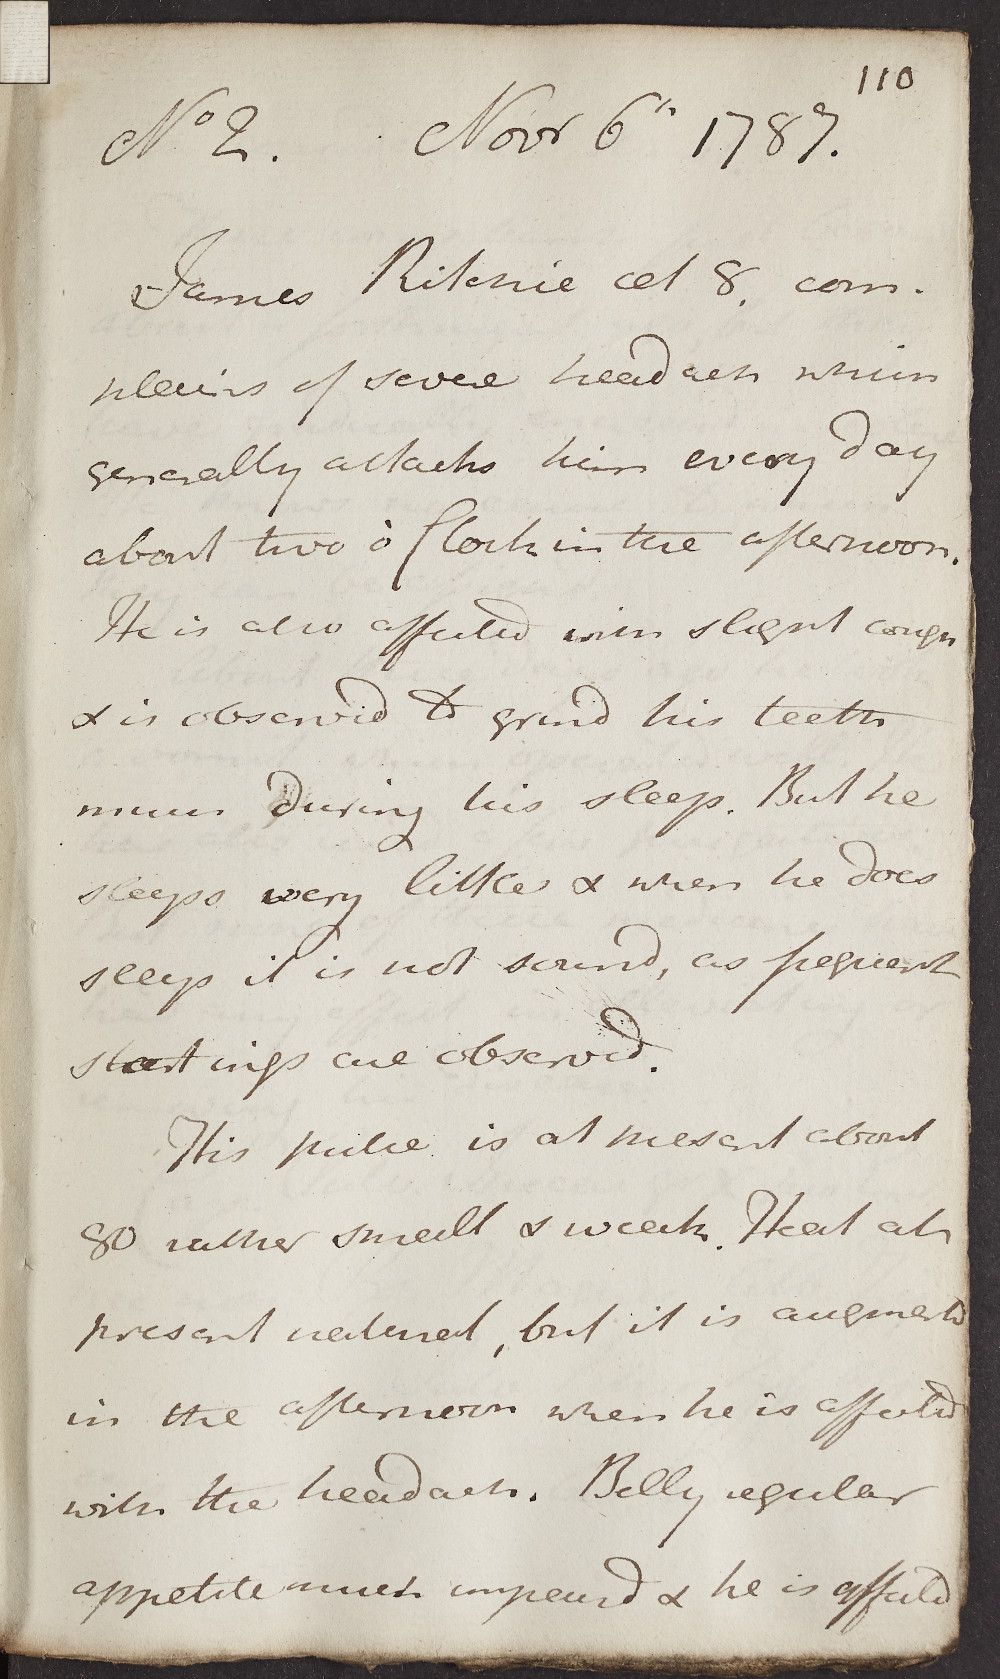 110
No 2. Novr 6th 1787.
James Ritchie aet 8. com-
plains of severe headach which
generally attacks him every day
about two o Clock in the afternoon.
He is also affected with slight cough
& is observed to grind his teeth
much during his sleep. But he
sleeps very little & when he does
sleep it is not sound, as frequent
startings are observed.
His pulse is at present about
80 rather small & weak. Heat at
present natural, but it is augmentd
in the afternoon when he is affected
with the headach. Belly regular
appetite much impaird & he is affected